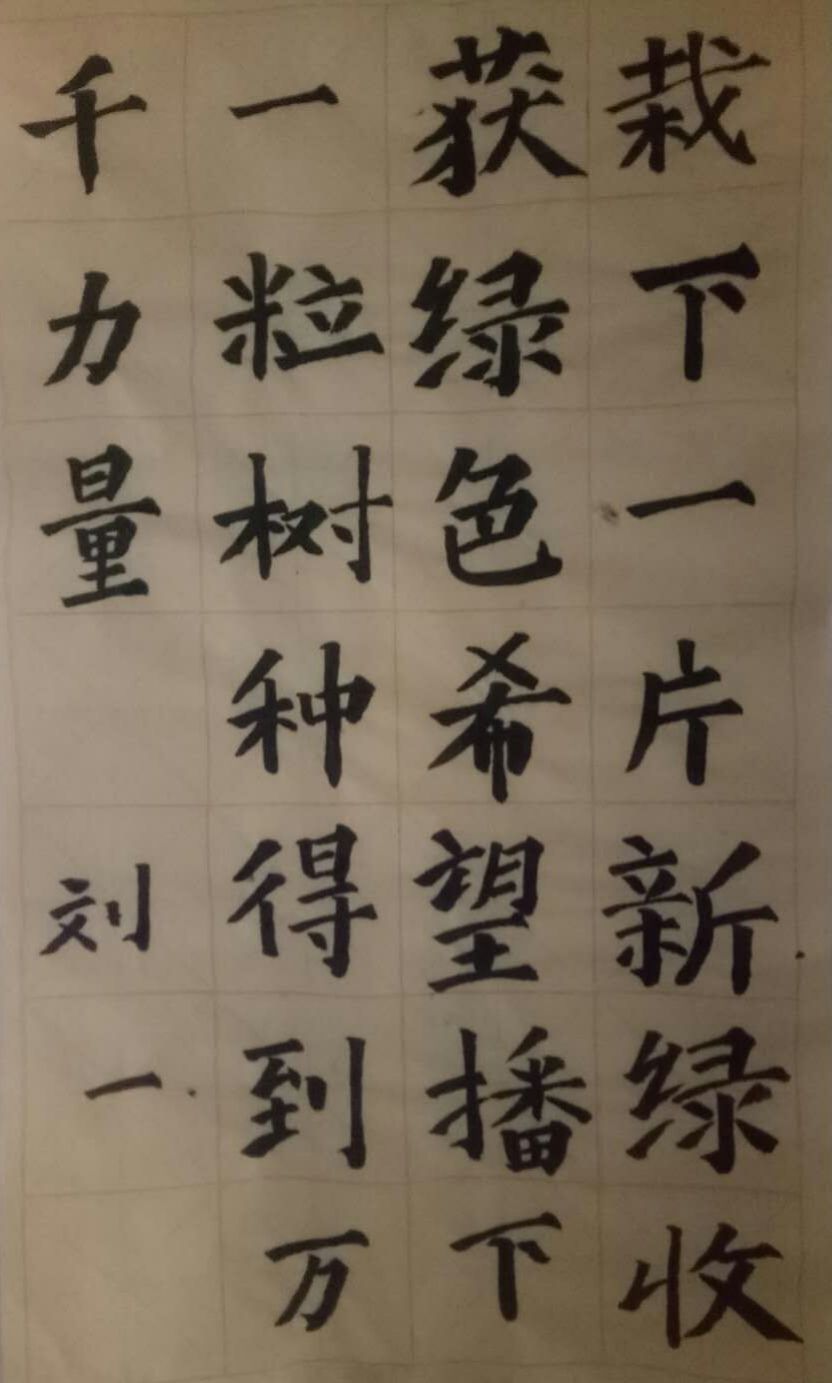 栽下一片新绿收
获绿色希望播下
一粒树种得到万
千力量
刘一